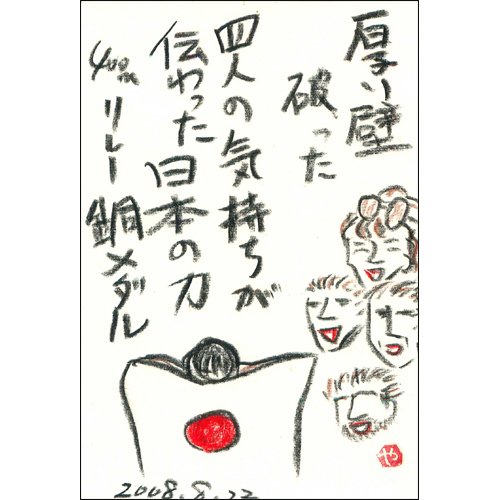 厚い壁
破った
四人の気持ちが
伝わった日本の力
400m リレー 銅メダル
や
2008.8.22